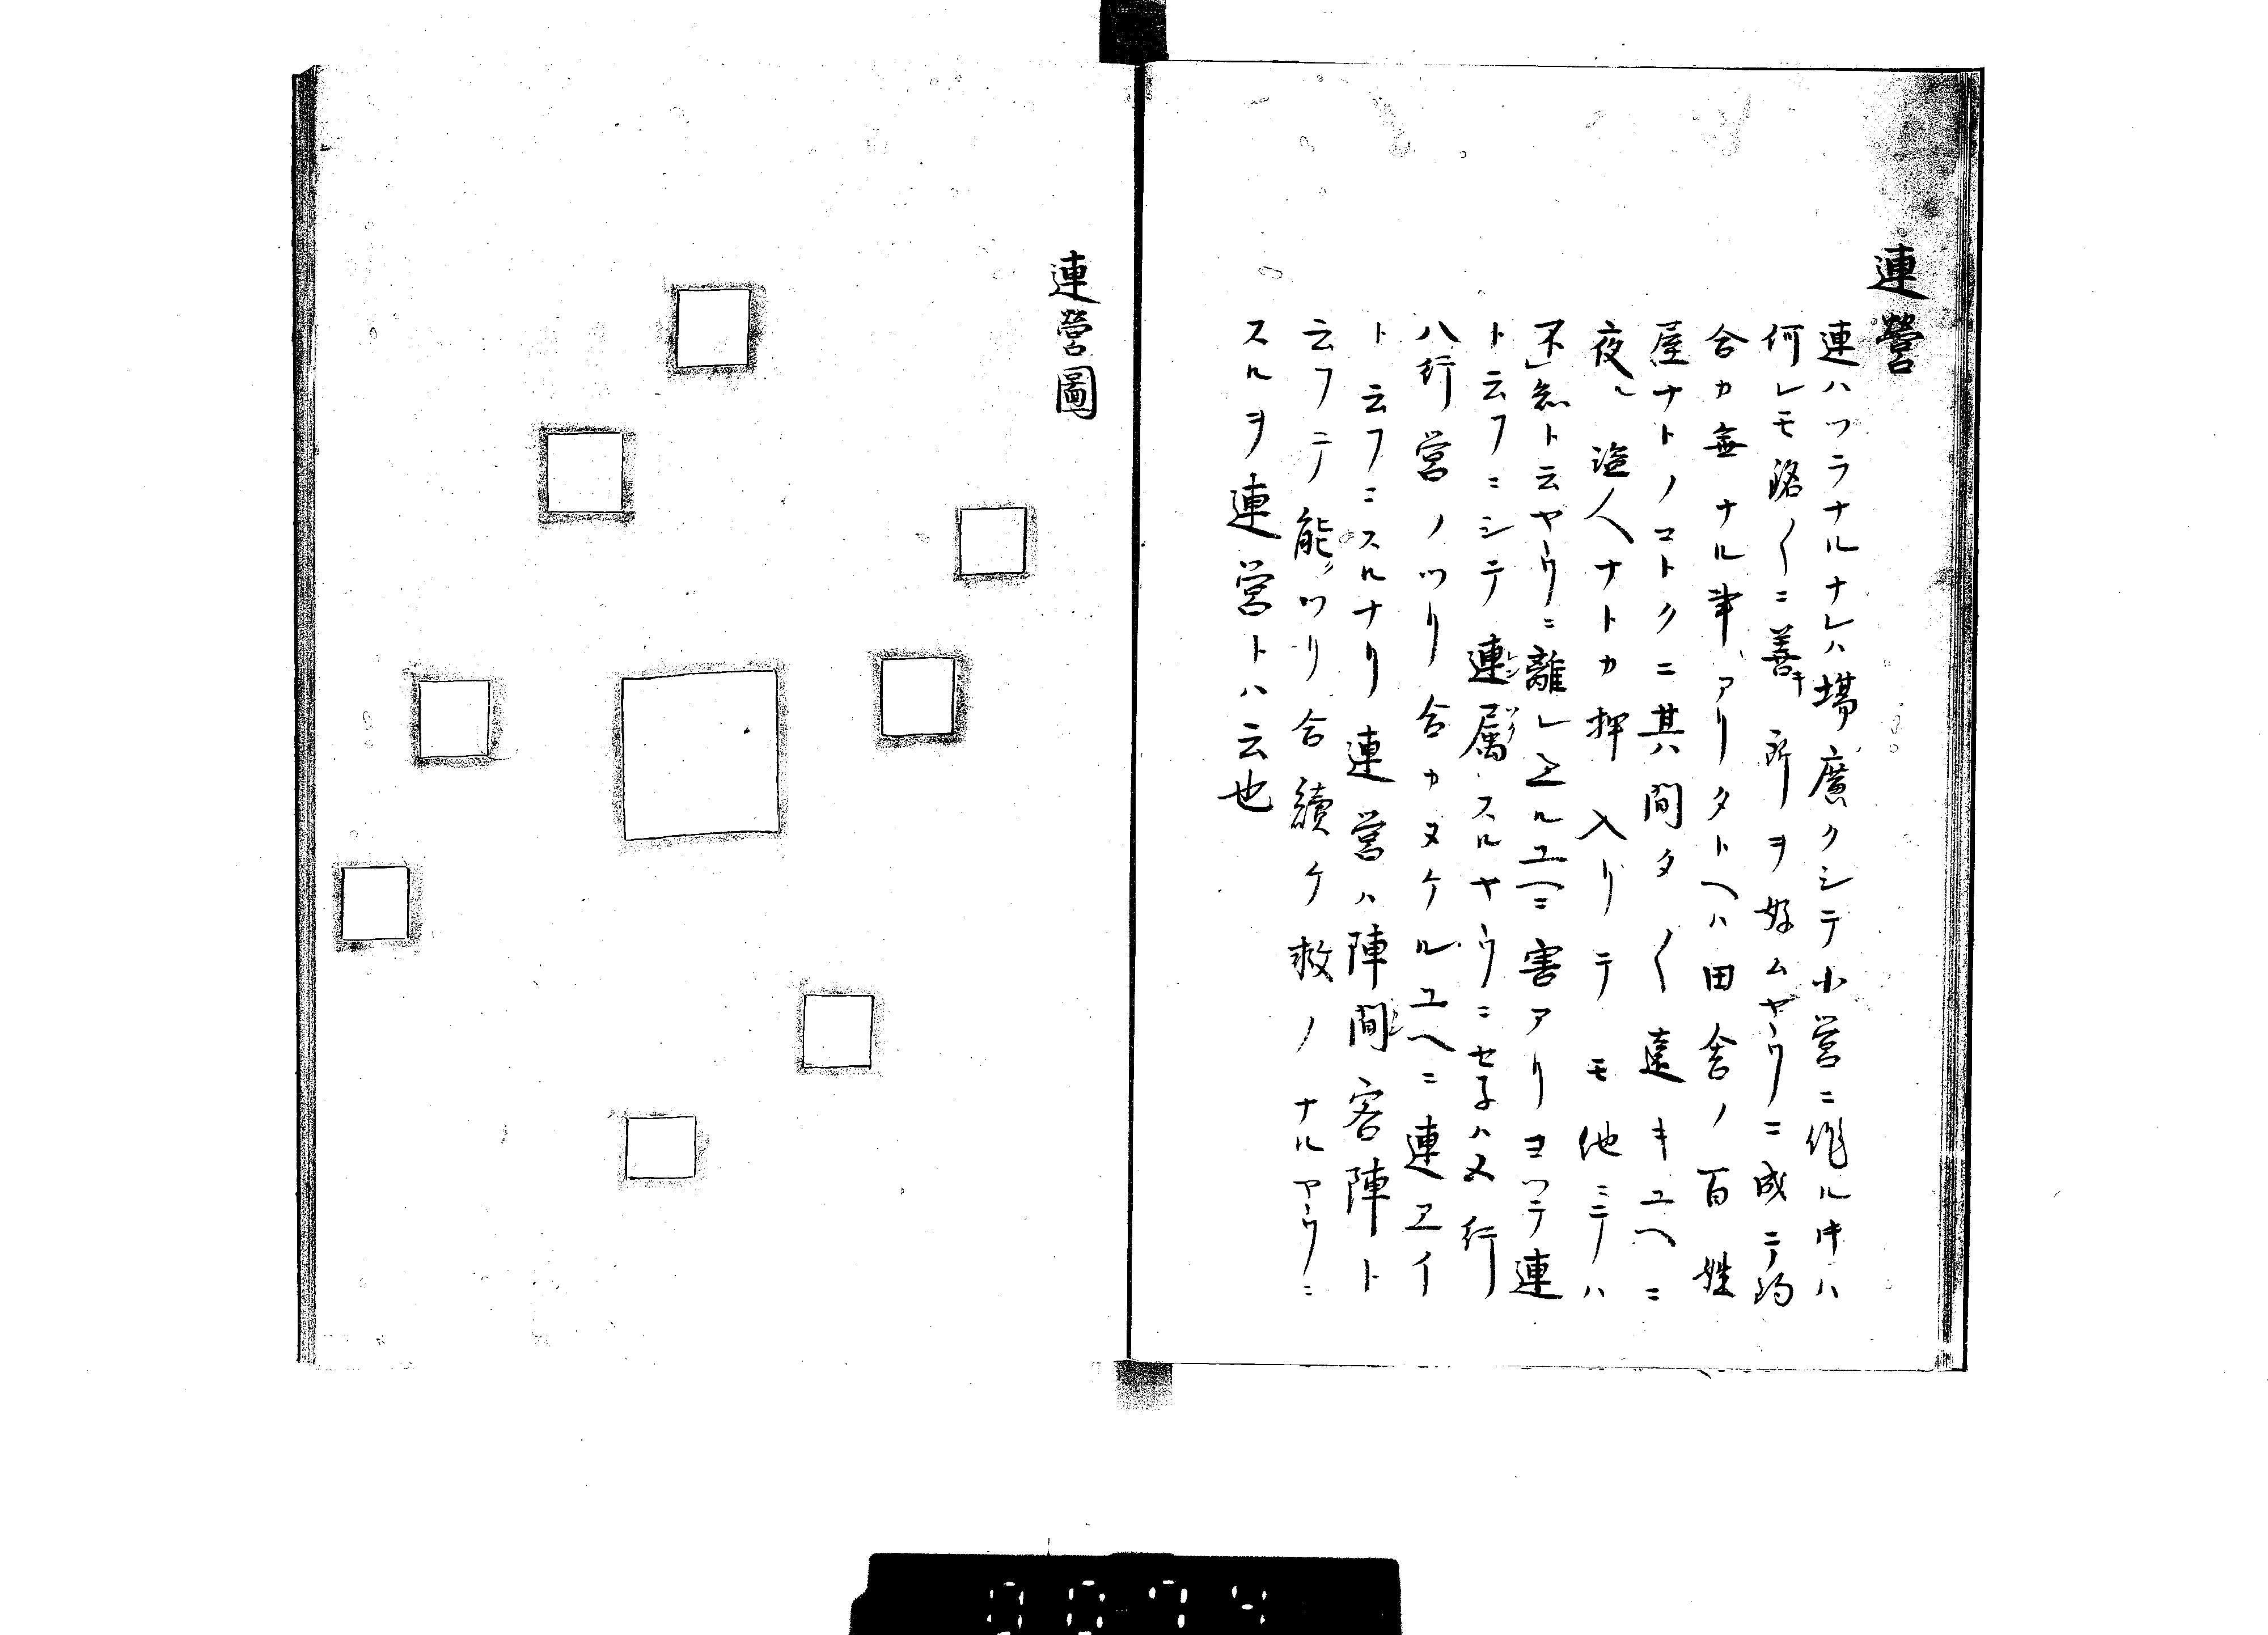 連營
連ハツラナルナレハ塲廣クシテ小営ニ作ル𪜈ハ
何レモ路〱ニ善キ所ヲ好ムヤウニ成ニテ均
合カ無ナル事アリタトヘハ田舎ノ百姓
屋ナトノコトクニ其ハ間タ〱遠キユヘニ
夜ル盗人ナトカ押入リテモ他ミニテハ
不レ知ト云ヤウニ離レユヘニ害アリヨツテ連
ト云フニシテ連レン属ソクスルヤウニセ子ハ又行
ハ行営ノツリ合カヌケルユヘニ連ヱイ
ト云フニスルナリ連営ハ陣間客陣ト
云フテ能ノツリ合續ケ救ノナルヤウニ
スルヲ連営トハ云也
連営圖